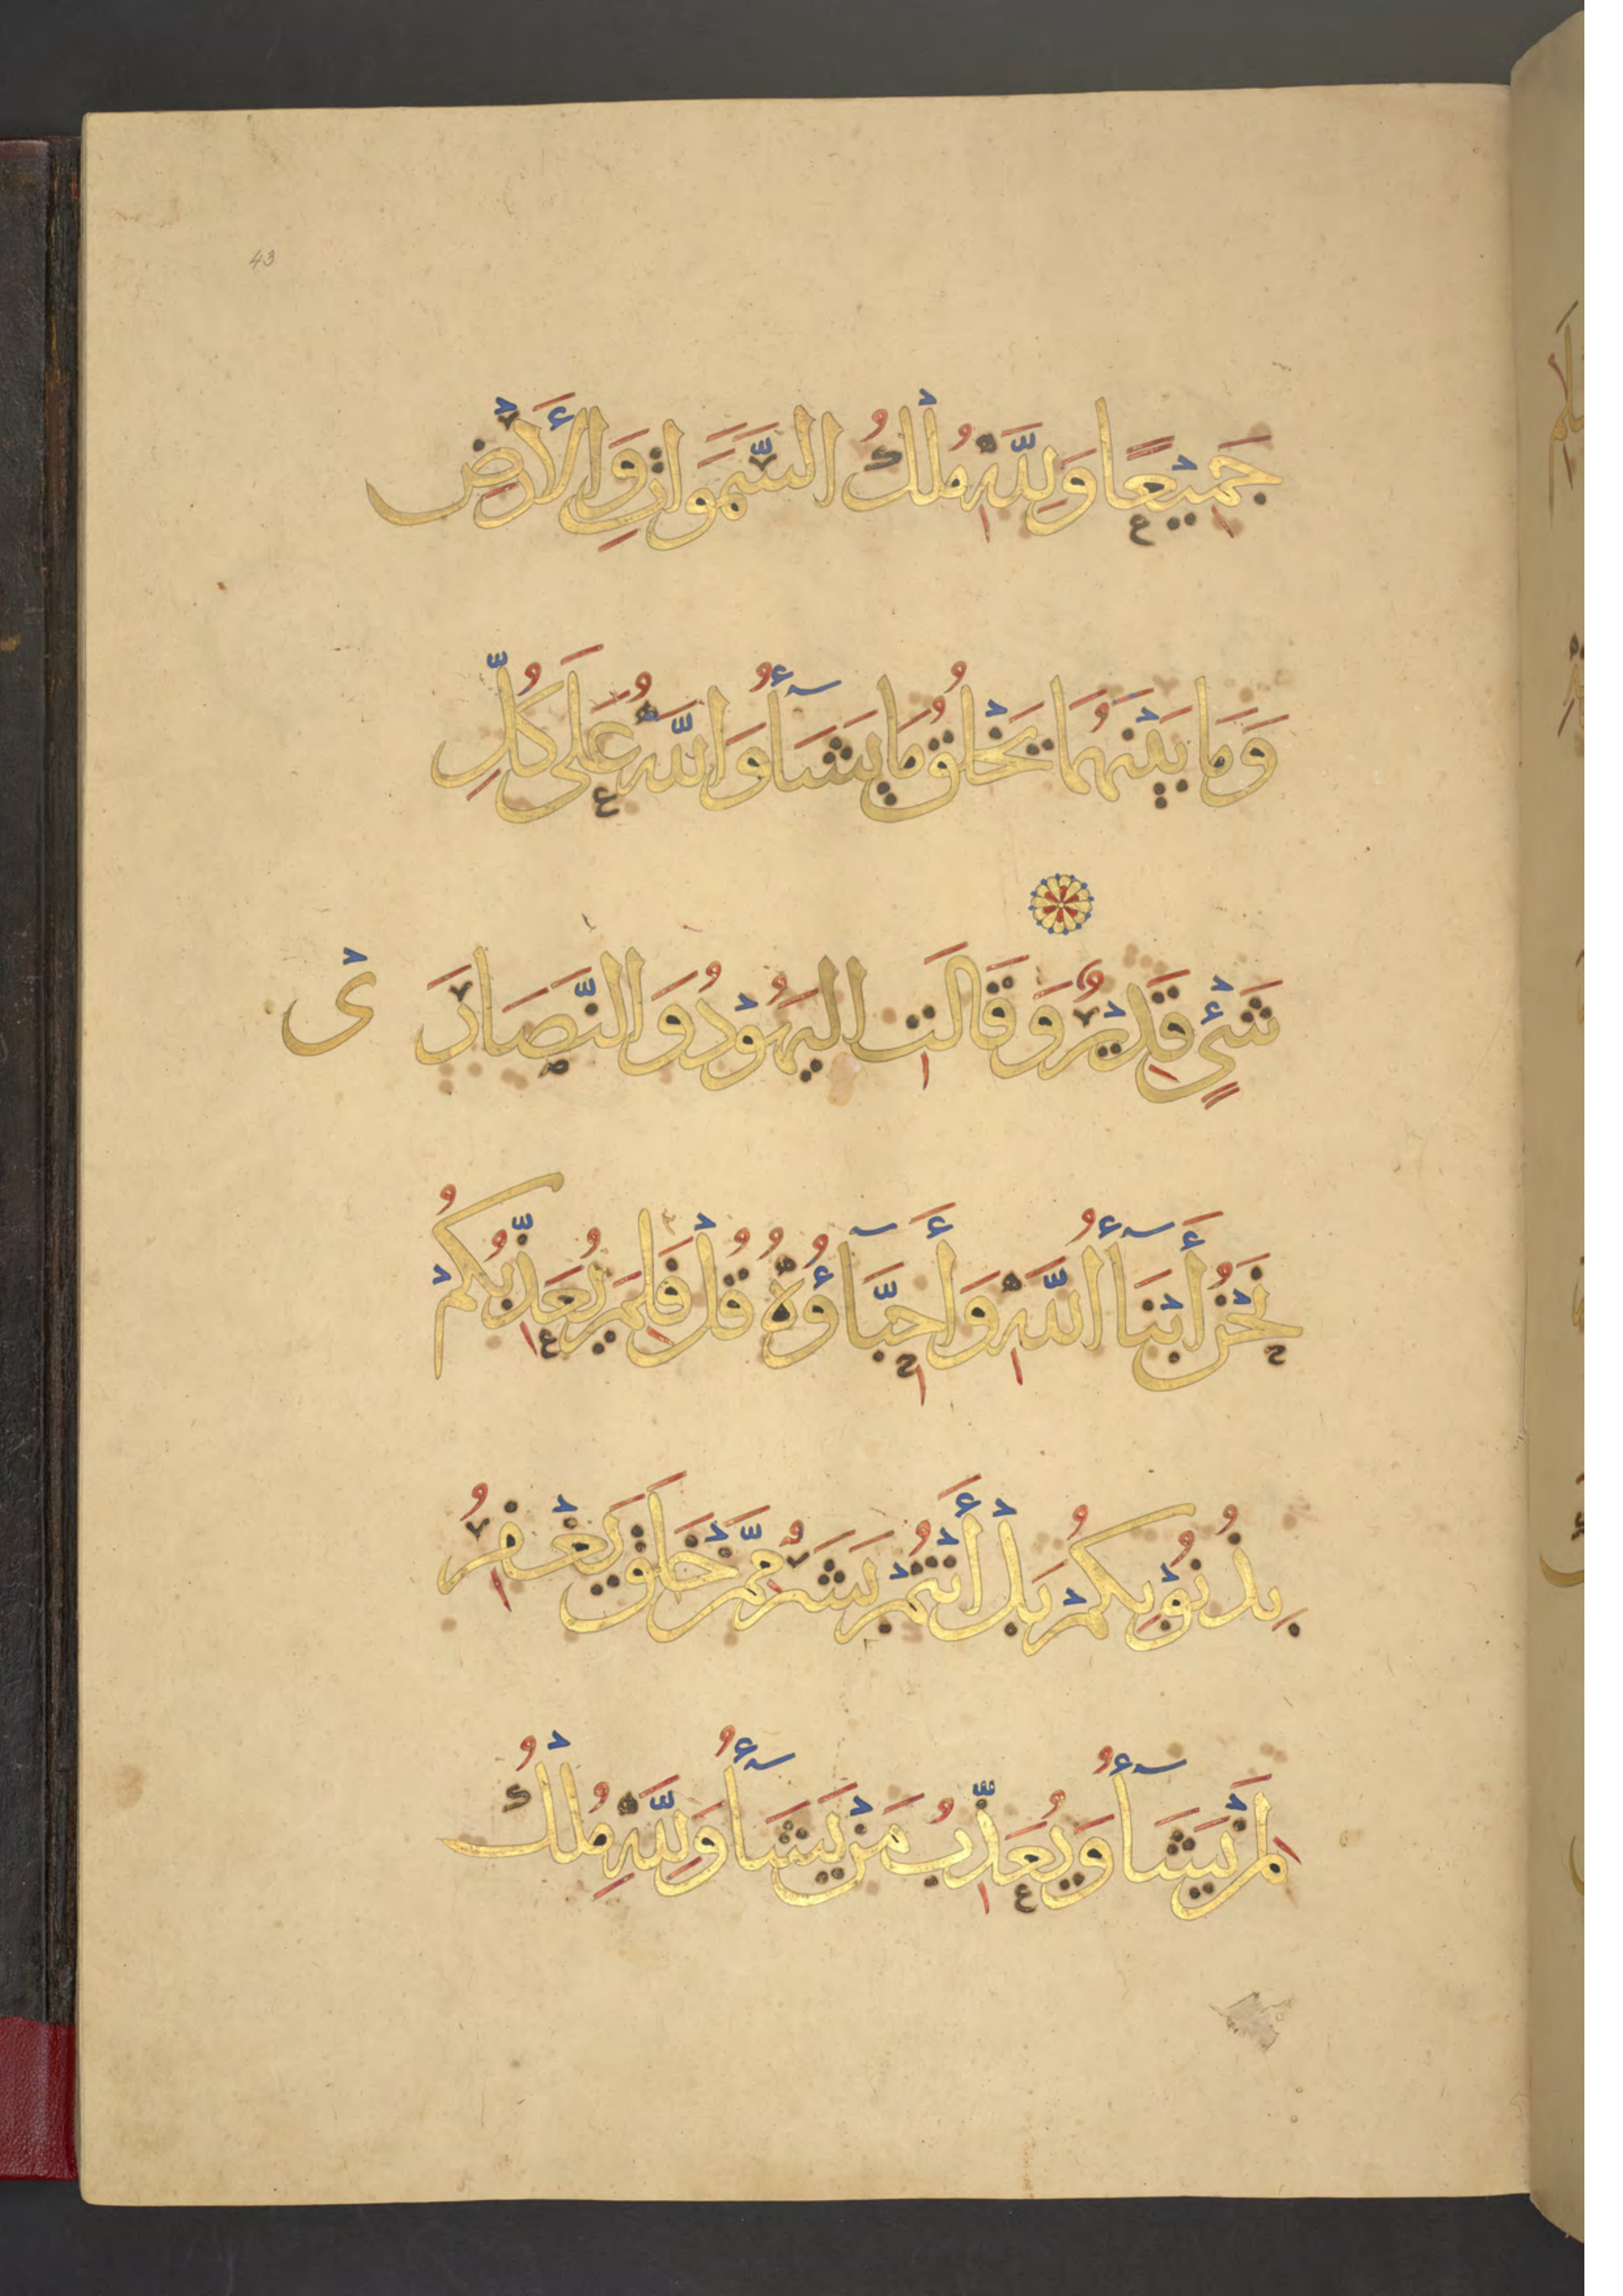 43
جَمِيْعًا وَلِلّٰهِ مُلْكُ السَّمَوَاتِ وَالْأَرْضِ
وَمَا بَيْنَهُمَا يَخْلُقُ مَا يَشَآأُ وَاللّٰهُ عَلَى كُلِّ
شَيْءٍ قَدِيْرٌ وَقَالَتِ الْيَهُوْدُ وَالنَّصَارَىْ
نَحْنُ أَبْنَآأُ اللّٰهِ وَأَحِبَّآؤُهُ قُلْ فَلِمَ يُعَذِّبُكُمْ
بِذُنُوْبِكُمْ بَلْ أَنْتُمْ بَشَرٌ مِمَّنْ خَلَقَ يَغْفِرُ
لِمَنْ يَشَآأُ وَيُعَذِّبُ مَنْ يَشَآأُ وَلِلّٰهِ مُلْكُ